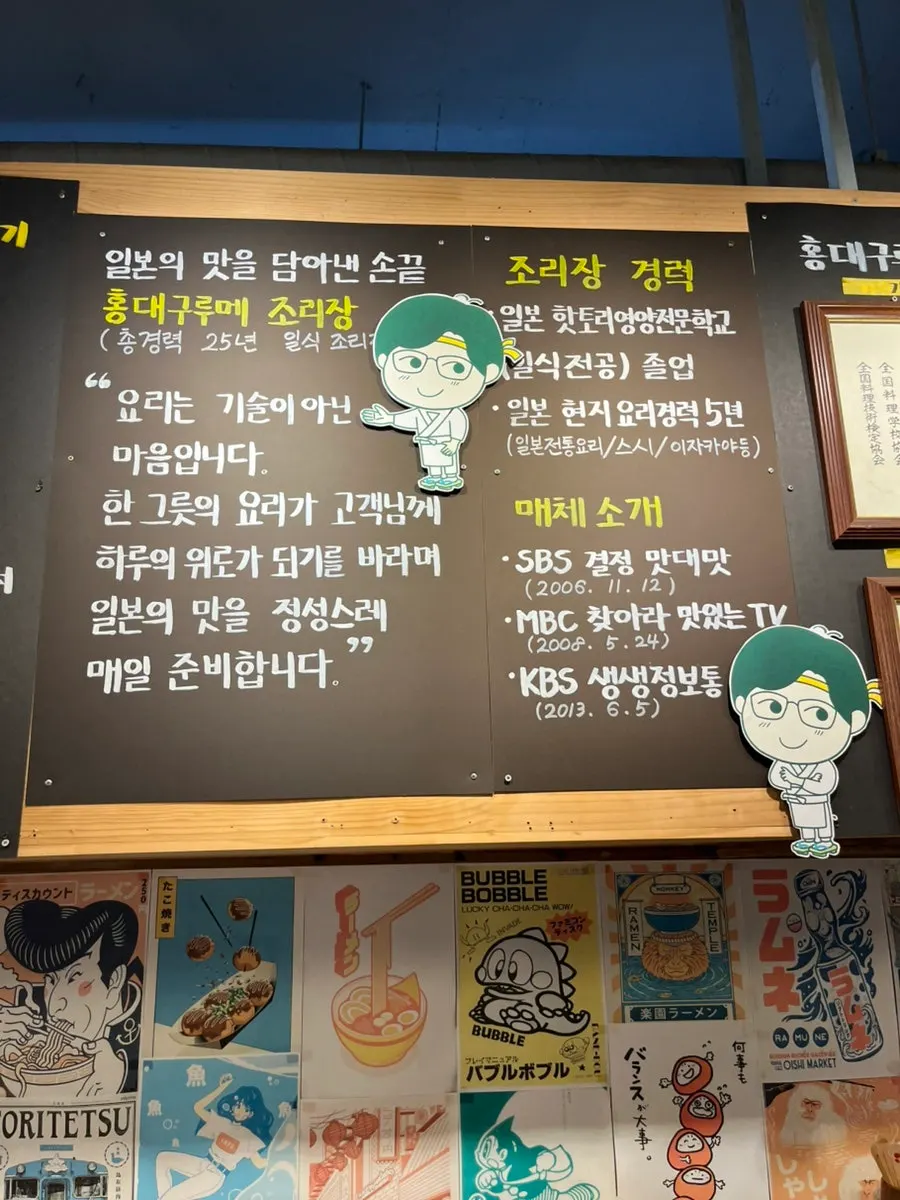 기
일본의 맛을 담아낸 손끝
홍대구루메 조리장
(총경력 25년 일식 조리
"요리는 기술이 아닌
마음입니다.
한 그릇의 요리가 고객님께
하루의 위로가 되기를 바라며
일본의 맛을 정성스레
매일 준비합니다."
조리장 경력
·일본 핫토리영양전문학교
(일식전공) 졸업
·일본 현지 요리경력 5년
(일본전통요리/스시/이자카야등)
매체 소개
·SBS 결정 맛대맛
(2006. 11. 12)
·MBC 찾아라 맛있는 TV
(2008. 5. 24)
·KBS 생생정보통
(2013. 6. 5)
홍대구루
全国料理学校協会
全国料理技術検定協会
ディスカウント ラーメン
250
たこ焼き
BUBBLE
BOBBLE
LUCKY CHA-CHA-CHA WOW!
ファミコン
ディスク
BUBBLE
プレイマニュアル
バブルボブル
MONKEY
RAMEN
TEMPLE
楽園ラーメン
ラムネ
ラムネ
RA MU NE
OISHI MARKET
ORITETSU
魚
魚
何事も
バランスが大事。
しゃし